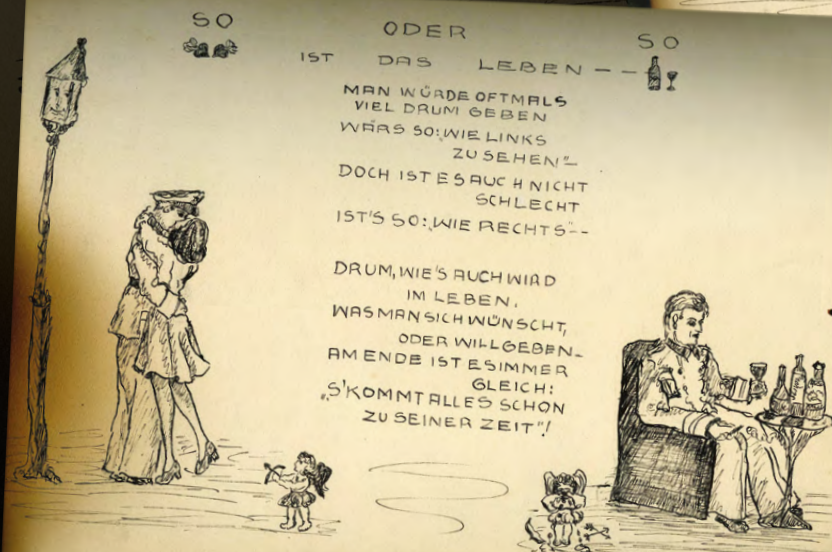 SO ODER SO
IST DAS LEBEN ---
MAN WÜRDE OFTMALS
VIEL DRUM GEBEN
WÄRS SO: „WIE LINKS
ZU SEHEN"-
DOCH IST ES AUCH NICHT
SCHLECHT
IST'S SO: „WIE RECHTS"--
DRUM, WIE'S AUCH WIRD
IM LEBEN,
WAS MAN SICH WÜNSCHT,
ODER WILL GEBEN-
AM ENDE IST ES IMMER
GLEICH:
„S'KOMMT ALLES SCHON
ZU SEINER ZEIT"!